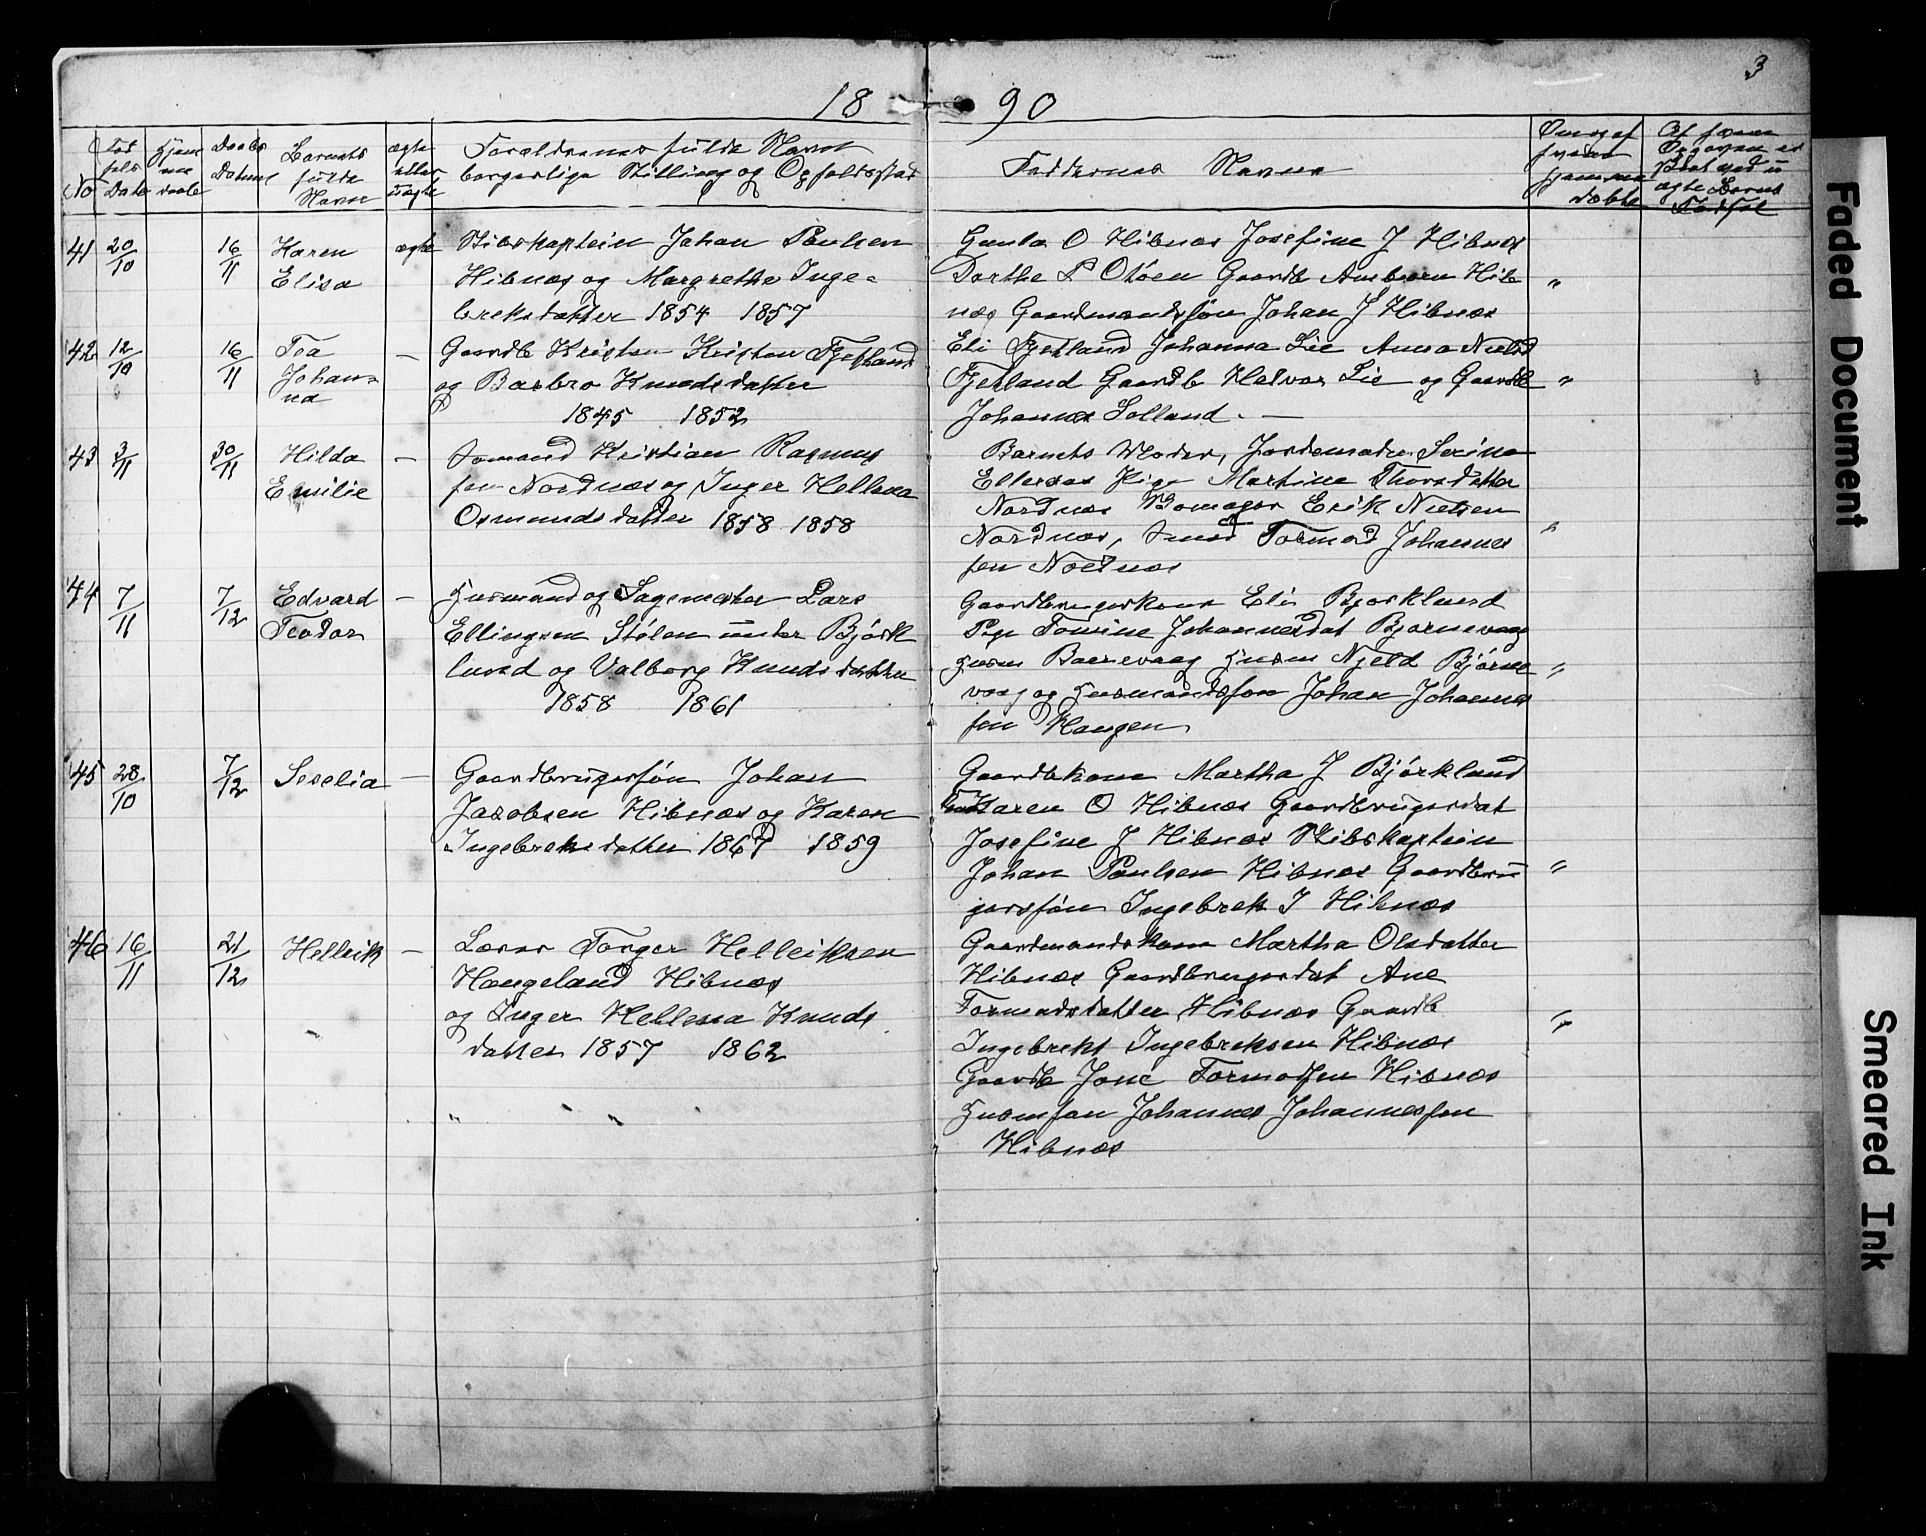 3
18 90
No
Fød
sels
Date
Hjem
me
døbte
Daabs
Datum
Barnets
fulde
Navn
ægte
eller
uægte
Foreldrenes fulde Navn
borgerlige Stilling og Opholdssted
Faddernes Navne
Om og af
hvem
hjemme
døbte
Af hvem
Opgaven er
skeet ved u
ægte Børns
Fødsel
41 20/10 16/11 Karen
Elisa
ægte
Skibskaptein Johan Poulsen
Hibnæs og Margrethe Inge-
breksdatter 1854 1857
Gunla O Hibnæs Josefine J Hibnæs
Dorthe P Otøen Gaardb Anbiørn Hib
næs Gaardmandssøn Johan J Hibnæs
"
42 12/10 16/11 Tea
Johan-
na
—
Gaardb Kristen Kristen Fjetland
og Barbro Knudsdatter
1845 1852
Eli Fjetland Johanna Lie Anna Nielsd
Fjetland Gaardb Halvor Lie og Gaardb
Johannes Solland. —
"
43 3/11 30/11 Hilda
Emilie
—
Sømand Kristian Rasmus
sen Nordnæs og Inger Hellena
Osmundsdatter 1858 1858
Barnets Moder, Jordemoder Serine
Ellernæs Pige Martine Thorsdatter
Nordnæs Skomager Erik Nielsen
Nordnæs, Smed Tormod Johannes
sen Nordnæs
"
44 7/11 7/12 Edvard
Teodor
—
Husmand og Sagmester Lars
Ellingsen Stølen under Bjørk
lund og Valborg Knudsdatter
1858 1861
Gaardbrugerkone Eli Bjorklund
Pige Tomine Johannesdat Bjornevaag
Husm Baernevaag Husm Njeld Bjørne
vaag og Husmandssøn Johan Johannes
sen Haugen
"
45 28/10 7/12 Seselia
—
Gaardbrugersøn Johan
Jacobsen Hibnæs og Karen
Ingebreksdatter 1867 1859
Gaardbkone Martha J Bjørklund
Karen O Hibnæs Gaardbrugerdat
Josefine J Hibnæs Skibskaptein
Johan Poulsen Hibnæs Gaardbru
gersøn Ingebrek J Hibnæs
"
46 16/11 21/12 Helleik
—
Lærer Torger Helleiksen
Haugeland Hibnæs
og Inger Hellena Knuds
datter 1857 1862
Gaardmandskone Martha Olsdatter
Hibnæs Gaardbrugerdat Ane
Tormodsdatter Hibnæs Gaardb
Ingebrekt Ingebreksen Hibnæs
Gaardb Jone Tormodsen Hibnæs
Husmsøn Johannes Johannessen
Hibnæs
"
Faded Document
Smeared Ink